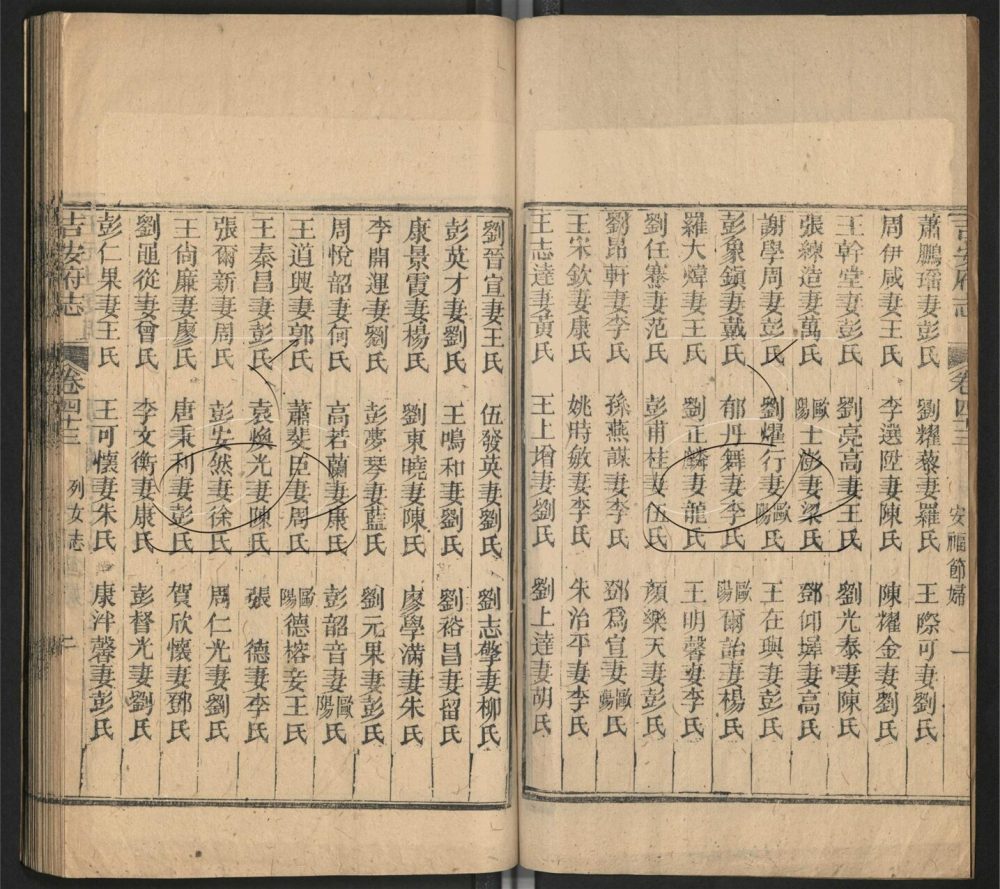 吉安府志 卷四十三 安福節婦 一
蕭鵬瑶妻彭氏 劉耀藜妻羅氏 王際可妻劉氏
周伊咸妻王氏 李選陞妻陳氏 陳耀金妻劉氏
王幹堂妻彭氏 劉亮高妻王氏 劉光泰妻陳氏
張練造妻萬氏 歐陽士澎妻梁氏 鄧仰墀妻高氏
謝學周妻彭氏 劉燿行妻歐陽氏 王在興妻彭氏
彭象鎮妻戴氏 郁丹舞妻李氏 歐陽爾詒妻楊氏
羅大煒妻王氏 劉正麟妻龍氏 王明馨妻李氏
劉任蹇妻范氏 彭甫桂妻伍氏 顏樂天妻彭氏
劉昂軒妻李氏 孫燕謀妻李氏 鄧爲宣妻歐陽氏
王宋欽妻康氏 姚時敏妻李氏 朱治平妻李氏
王志達妻黃氏 王上增妻劉氏 劉上達妻胡氏
劉晉宣妻王氏 伍發英妻劉氏 劉志擎妻柳氏
彭英才妻劉氏 王鳴和妻劉氏 劉裕昌妻留氏
康景霞妻楊氏 劉東曉妻陳氏 廖學滿妻朱氏
李開運妻劉氏 彭夢琴妻藍氏 劉元果妻彭氏
周悅韶妻何氏 高若蘭妻康氏 彭韶音妻歐陽氏
王道興妻郭氏 蕭斐臣妻周氏 歐陽德榕妾王氏
王泰昌妻彭氏 袁煥光妻陳氏 張德妻李氏
張爾新妻周氏 彭安然妻徐氏 周仁光妻劉氏
王尙廉妻廖氏 唐秉利妻彭氏 賀欣懷妻鄧氏
劉從妻曾氏 李文衡妻康氏 彭督光妻劉氏
彭仁果妻王氏 王可懷妻朱氏 康泮馨妻彭氏
吉安府志 卷四十三 列女志 二